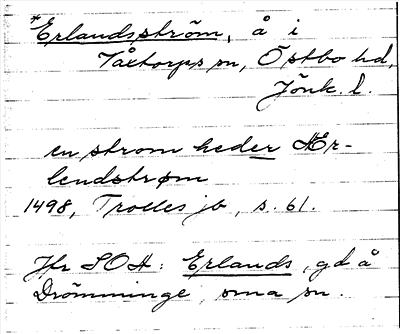 *Erlandsström, å i
Tåxtorps sn, Östbo hd,
Jönk. l.
en strom heder Er-
lendstrøm
1498, Trolles jb, s. 61.
Jfr SOA: Erlands, gd å
Drömminge, sma sn.